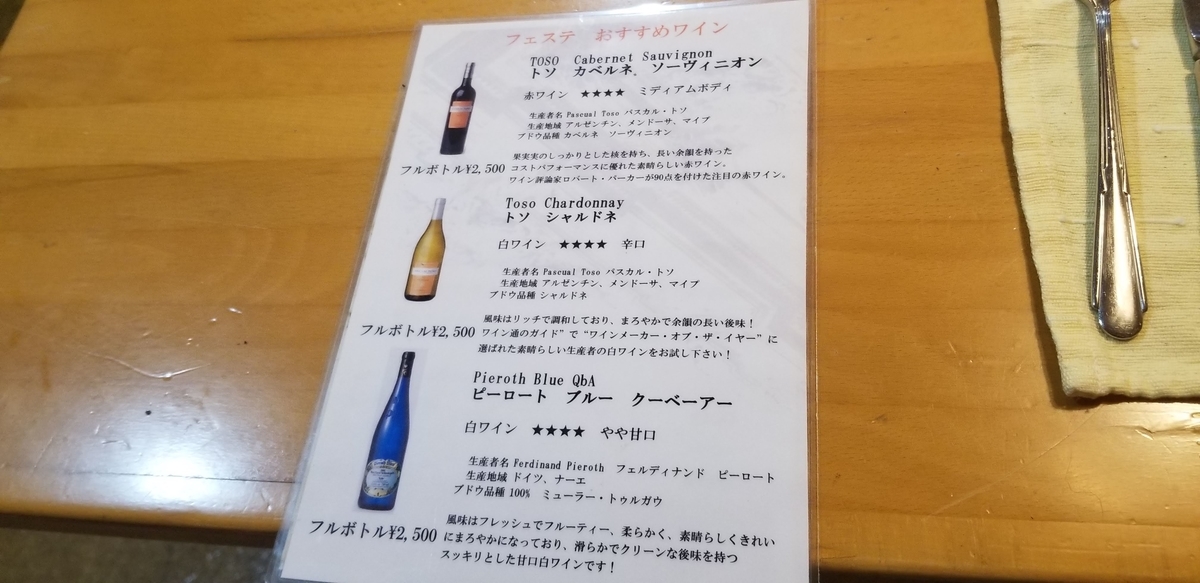 フェステ おすすめワイン
TOSO Cabernet Sauvignon
トソ カベルネ. ソーヴィニオン
赤ワイン ★★★★ ミディアムボディ
生産者名 Pascual Toso パスカル・トソ
生産地域 アルゼンチン、メンドーサ、マイプ
ブドウ品種 カベルネ ソーヴィニオン
フルボトル¥2,500
果実実のしっかりとした核を持ち、長い余韻を持った
コストパフォーマンスに優れた素晴らしい赤ワイン。
ワイン評論家ロバート・パーカーが90点を付けた注目の赤ワイン。
Toso Chardonnay
トソ シャルドネ
白ワイン ★★★★ 辛口
生産者名 Pascual Toso パスカル・トソ
生産地域 アルゼンチン、メンドーサ、マイプ
ブドウ品種 シャルドネ
フルボトル¥2,500
風味はリッチで調和しており、まろやかで余韻の長い後味！
ワイン通のガイド”で“ワインメーカー・オブ・ザ・イヤー”に
選ばれた素晴らしい生産者の白ワインをお試し下さい！
Pieroth Blue QbA
ピーロート ブルー クーベーアー
白ワイン ★★★★ やや甘口
生産者名 Ferdinand Pieroth フェルディナンド ピーロート
生産地域 ドイツ、ナーエ
ブドウ品種 100% ミューラー・トゥルガウ
フルボトル¥2,500
風味はフレッシュでフルーティー、柔らかく、素晴らしくきれい
にまろやかになっており、滑らかでクリーンな後味を持つ
スッキリとした甘口白ワインです！